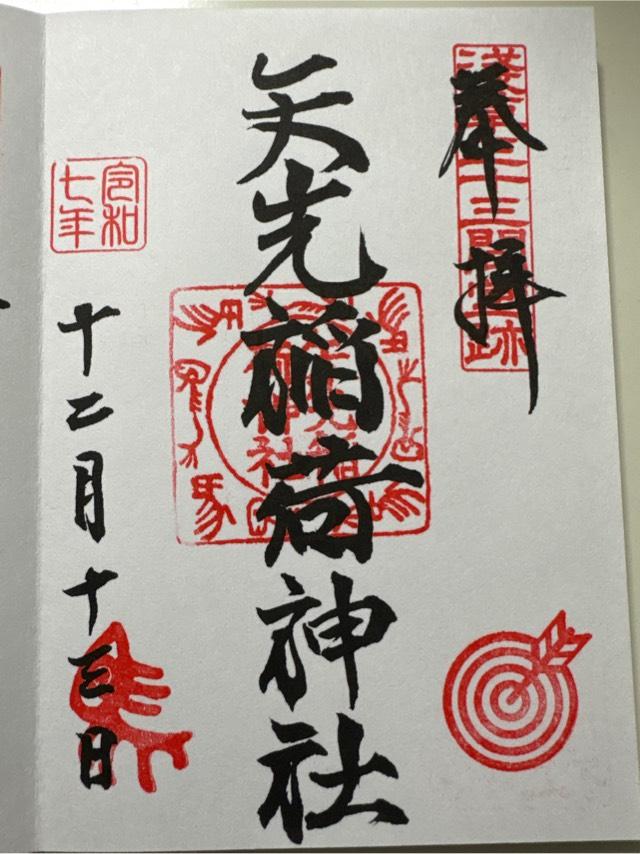 奉拝
浅草三十三間堂跡
矢先稲荷神社
令和七年
十二月十三日